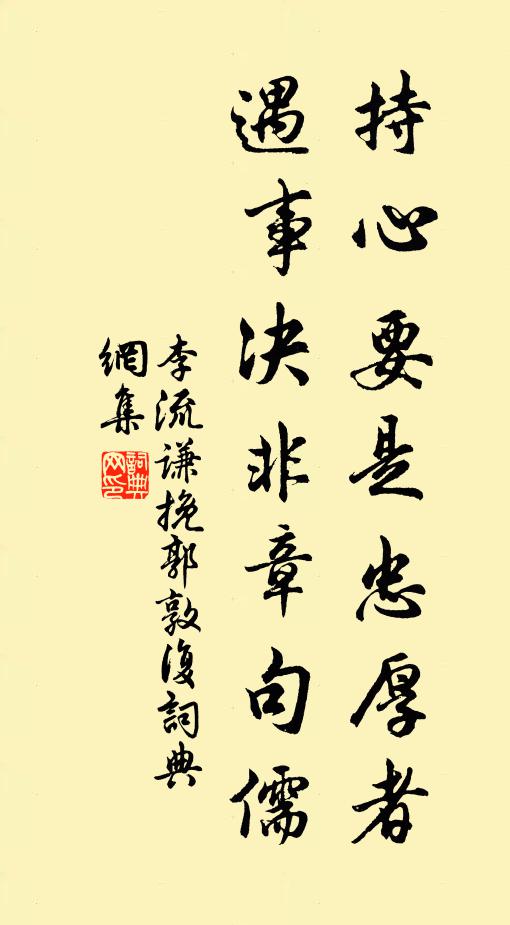 持心要是忠厚者
遇事决非章句儒
李流谦挽郭敦復詞典
網集
詞典
网印